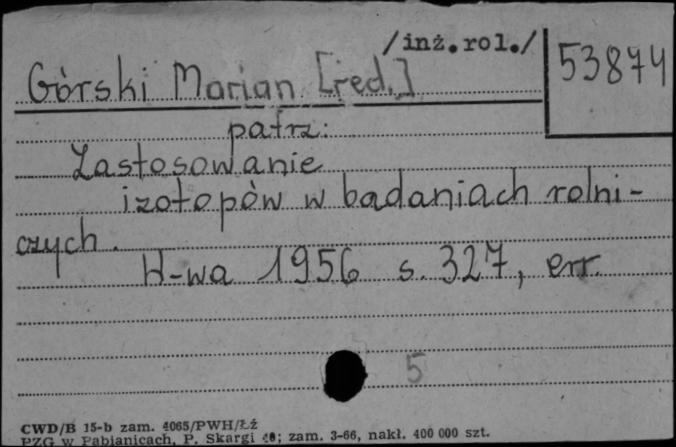 /inż.rol./
53874
Górski Marian [red.]
patrz:
Zastosowanie
izotopów w badaniach rolni-
czych.
W-wa 1956 s. 327, err.
5
CWD/B 15-b zam. 4065/PWH/Łź
PZG w Pabianicach, P. Skargi 40; zam. 3-66, nakł. 400 000 szt.